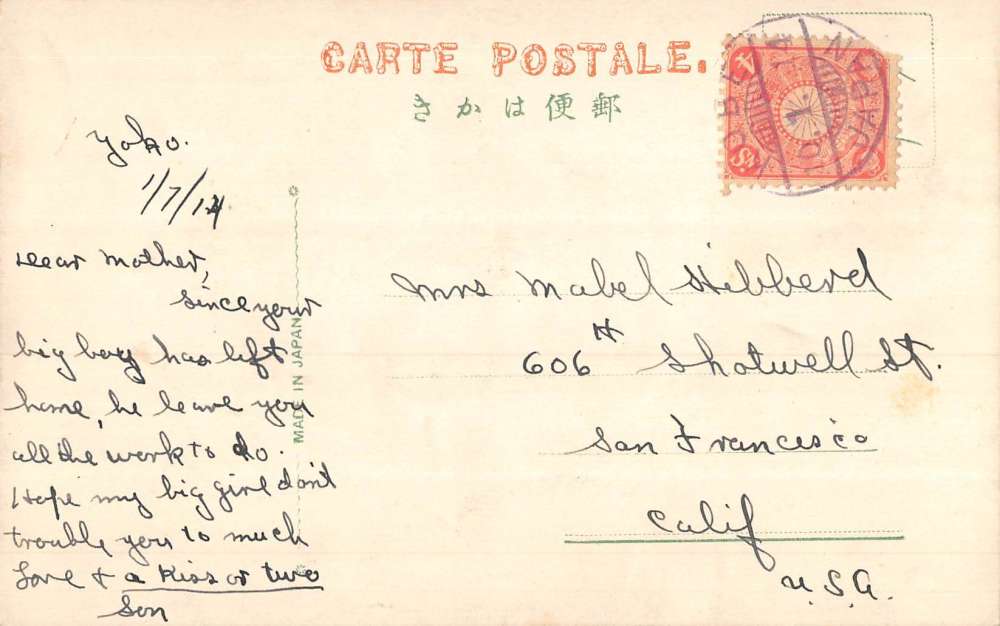 CARTE POSTALE.
きかは便郵
Yoko.
1/7/14
Dear Mother,
Since your
big boy has left
home, he leave you
all the work to do.
Hope my big girl don't
trouble you to much
Love + a kiss or two
Son
MADE IN JAPAN
Mrs Mabel Hibberd
606 H Shotwell St.
San Francisco
Calif
U.S.A.
4
Sn.
JAPAN